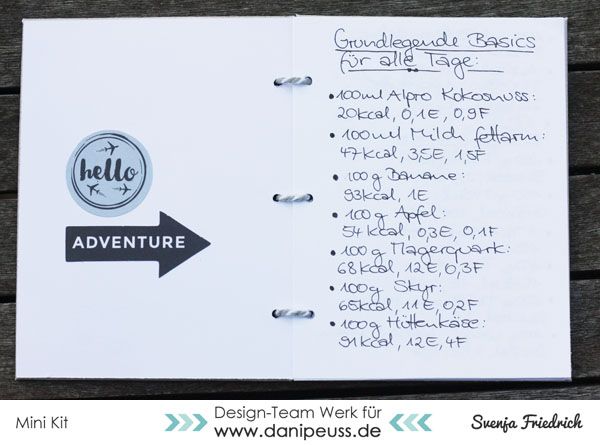 hello
ADVENTURE
Grundlegende Basics
für alle Tage:
• 100ml Alpro Kokosnuss:
20kcal, 0,1E, 0,9F
• 100ml Milch fettarm:
47kcal, 3,5E, 1,5F
• 100g Banane:
93kcal, 1E
• 100g Apfel:
54kcal, 0,3E, 0,1F
• 100g Magerquark:
68kcal, 12E, 0,3F
• 100g Skyr:
65kcal, 11E, 0,2F
• 100g Hüttenkäse:
91kcal, 12E, 4F
Mini Kit
Design-Team Werk für
www.danipeuss.de
Svenja Friedrich